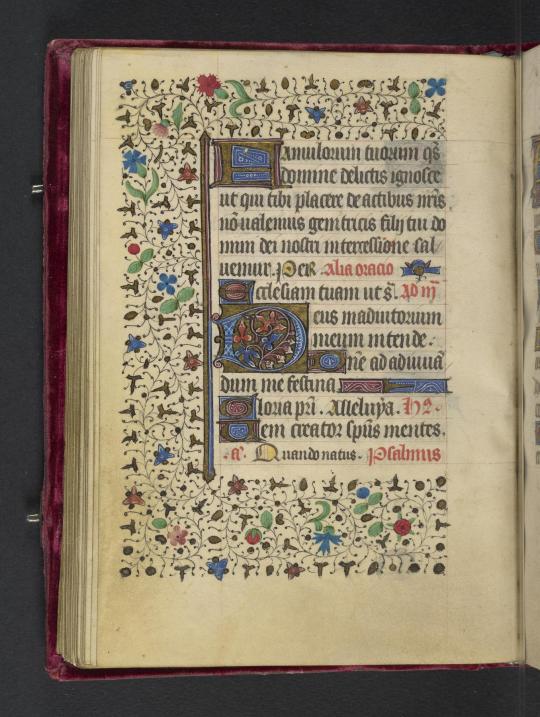 Famulorum tuorum qs̄
domine delictis ignosce
ut qui tibi placere de actibus nr̄is
nō ualemus genitricis filij tui do
mini dei nostri intercessione sal
uemur. Per. Alia oracio
Ecclesiam tuam ut s̄. Ad iij
Deus in adiutorium
meum intende.
Dn̄e ad adiuuā
dum me festina
Gloria pr̄i. Alleluya. hỹ.
Ueni creator sp̄us mentes.
a. Quando natus. Psalmus